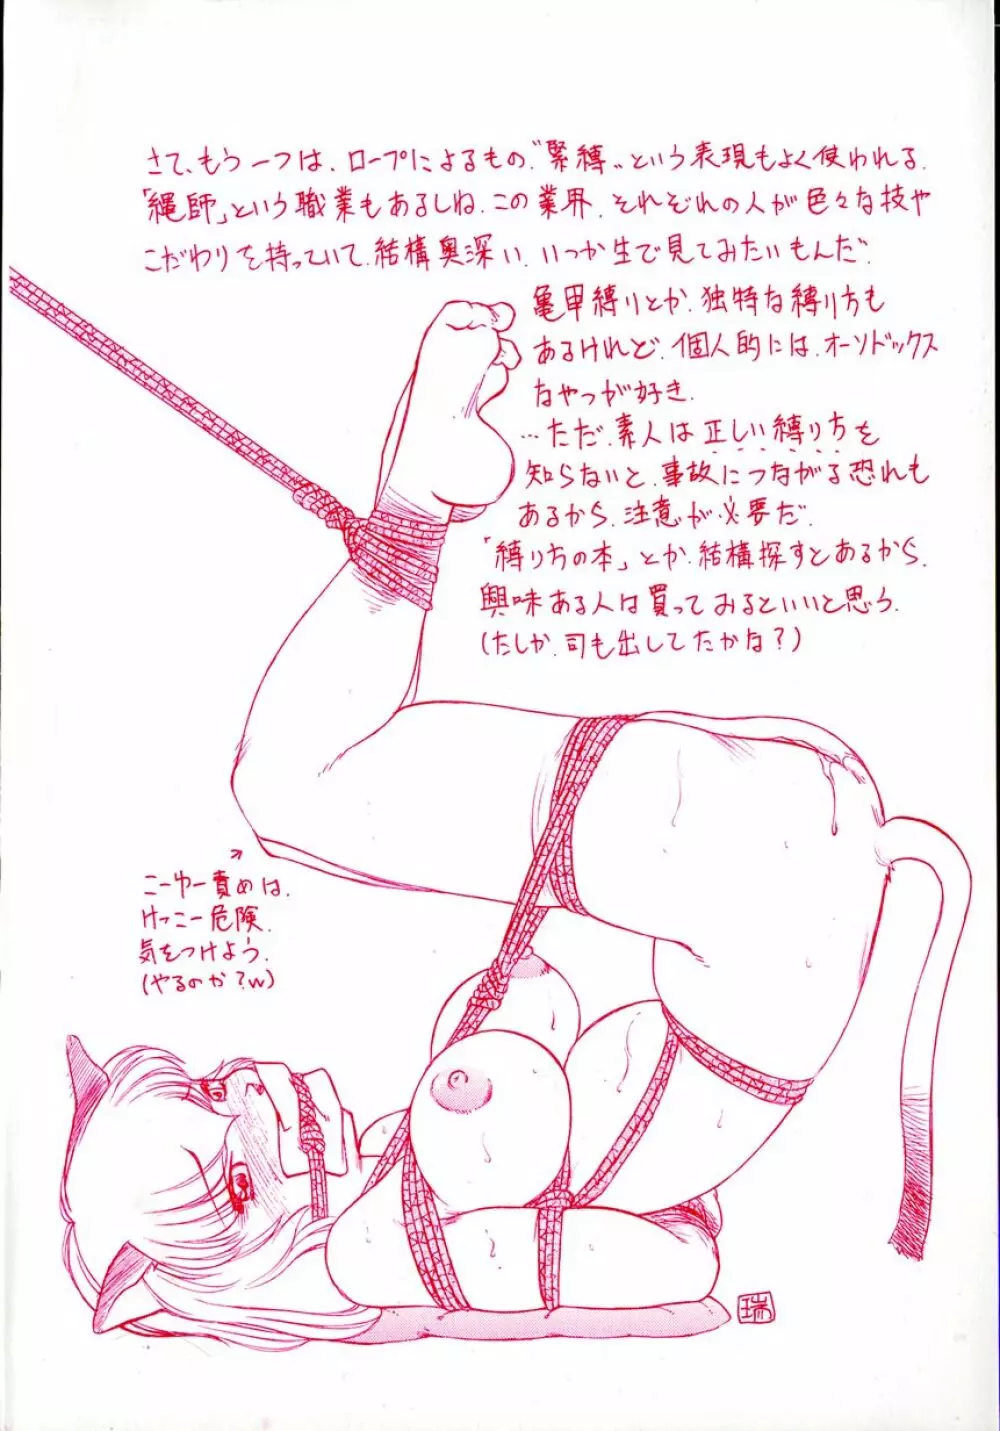 さて、もう一つは、ロープによるもの、"緊縛"という表現もよく使われる。
「縄師」という職業もあるしね、この業界、それぞれの人が色々な技や
こだわりを持っていて、結構奥深い、いつか生で見てみたいもんだ。
亀甲縛りとか、独特な縛り方も
あるけれど、個人的には、オーソドックス
なやつが好き。
…ただ、素人は正しい縛り方を
知らないと、事故につながる恐れも
あるから、注意が必要だ。
「縛り方の本」とか、結構探すとあるから、
興味ある人は買ってみるといいと思う。
(たしか、司も出してたかな?)
こーゆー責めは、
けっこー危険。
気をつけよう。
(やるのか?w)
瑞